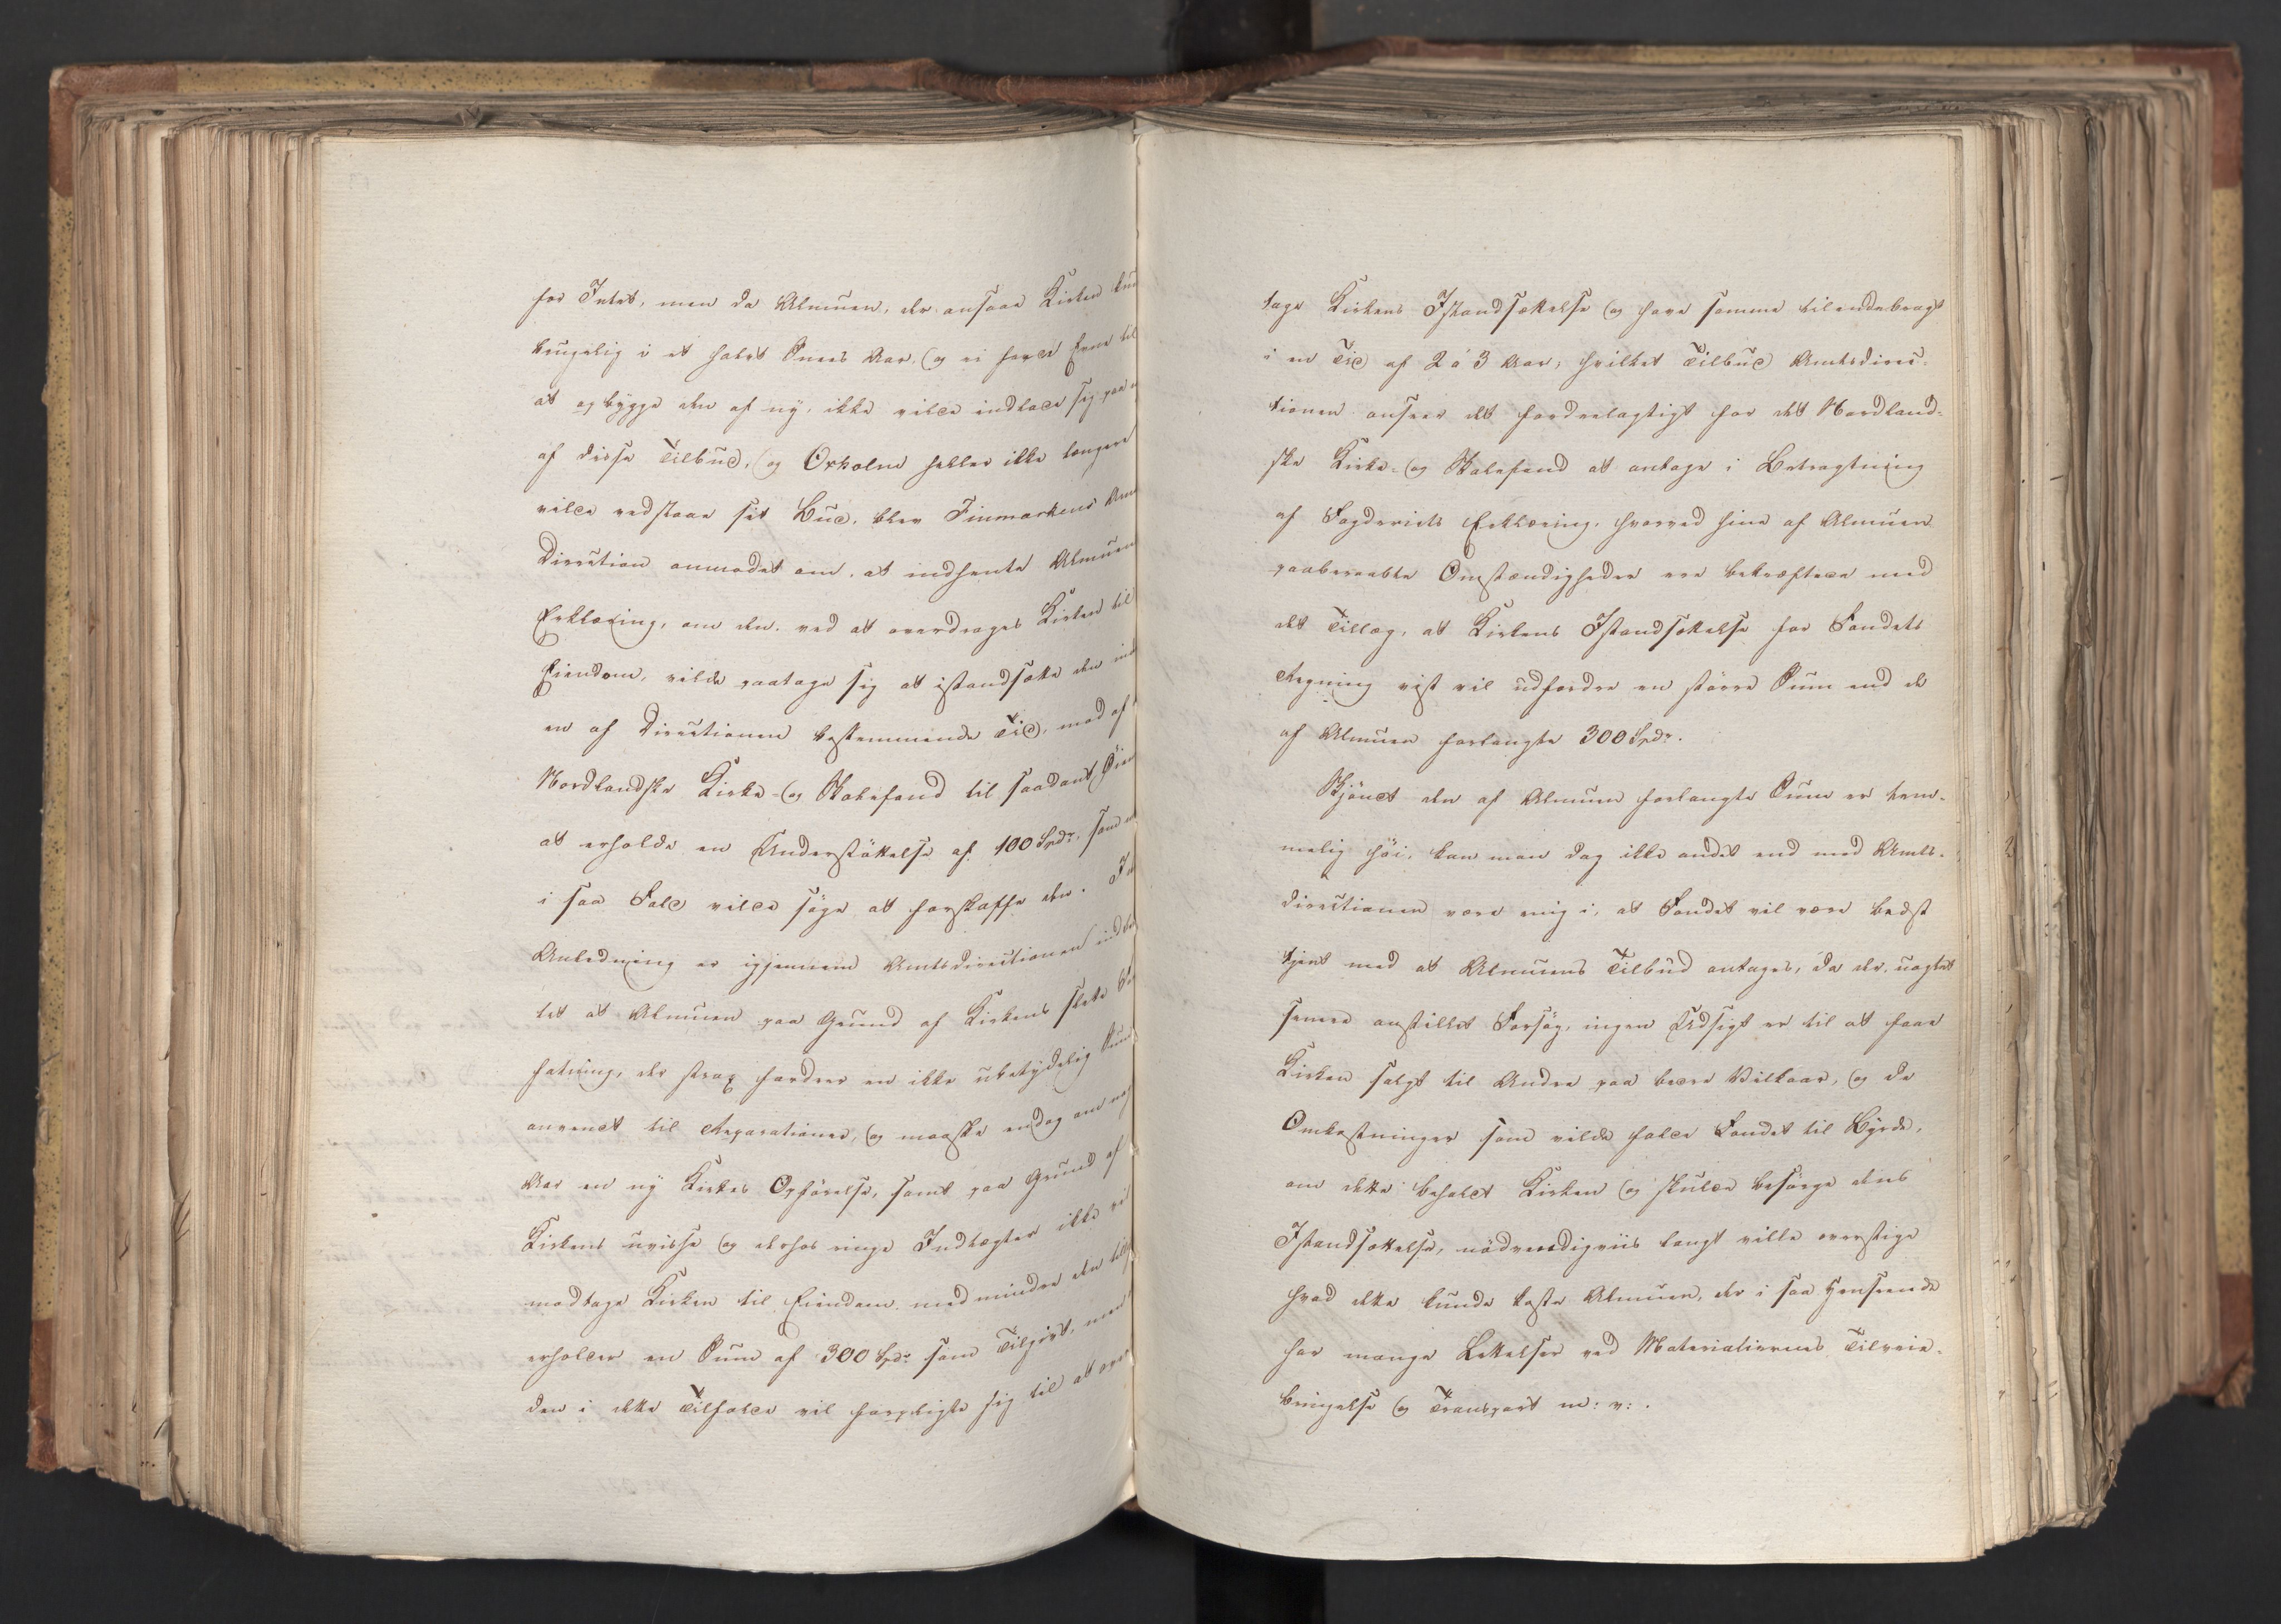 for Intet, men da Almuen, der ansaae Kirken kun
brugelig i et halvt Snees Aar, og ei havde Evne til
at opbygge den af ny, ikke vilde indlade sig paa
af disse Tilbud, og Oxholm heller ikke længere
vilde vedstaae sit Bud, blev Finmarkens Am
Direction anmodet om, at indhente Almuen
Erklæring, om den, ved at overdrages Kirken til
Eiendom, vilde paatage sig at istandsætte den ind
en af Directionen bestemmende Tid, mod af
Nordlandske Kirke- og Skolefond til saadant Øiem
at erholde en Understøttelse af 100 Spdr, som
i saa Fald vilde søge at forskaffe den. I
Anledning er igjennem Amtsdirectionen indbe
tet at Almuen paa Grund af Kirkens slette Be
fatning, der strax fordrer en ikke ubetydelig Sum
anvendt til Reparationer, og maaske endog om
Aar en ny Kirkes Opførelse, samt paa Grund af
Kirkens uvisse og derhos ringe Indtægter ikke vil
modtage Kirken til Eiendom, med mindre den til
erholder en Sum af 300 Spdr som Tilgivt, men
den i dette Tilfælde vil forpligte sig til at over
tage Kirkens Istandsættelse og have samme tilendebragt
i en Tid af 2 à 3 Aar, hvilket Tilbud Amtsdirec-
tionen anseer det fordeelagtigt for det Nordland-
ske Kirke- og Skolefond at antage i Betragtning
af Fogderiets Erklæring, hvorved hine af Almuen
paaberaabte Omstændigheder ere bekræftede med
det Tillæg, at Kirkens Istandsættelse for Fondets
Regning vist vil udfordre en større Sum end de
af Almuen forlangte 300 Spdr.
Skjøndt den af Almuen forlangte Sum er tem-
melig høi, kan man dog ikke andet end med Amts-
directionen være enig i, at Fondet vil være bedst
tjent med at Almuens Tilbud antages, da der, uagtet
senere anstillet Forsøg, ingen Udsigt er til at faae
Kirken solgt til Andre paa bedre Vilkaar, og de
Omkostninger som vilde falde Fondet til Byrde,
om dette beholdt Kirken og skulde besørge dens
Istandsættelse, nødvendigviis langt ville overstige
hvad dette kunde koste Almuen, der i saa Henseende
har mange Lettelser ved Materialiernes Tilveie-
bringelse og Transport m: v: .